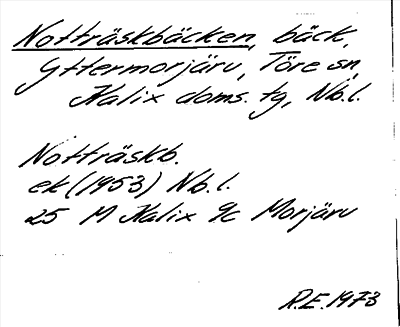 Notträskbäcken, bäck,
Yttermorjärv, Töre sn,
Kalix doms. tg, Nb.l.
Notträskb.
ek (1953) Nb.l.
25 M Kalix 9c Morjärv
R.E. 1973